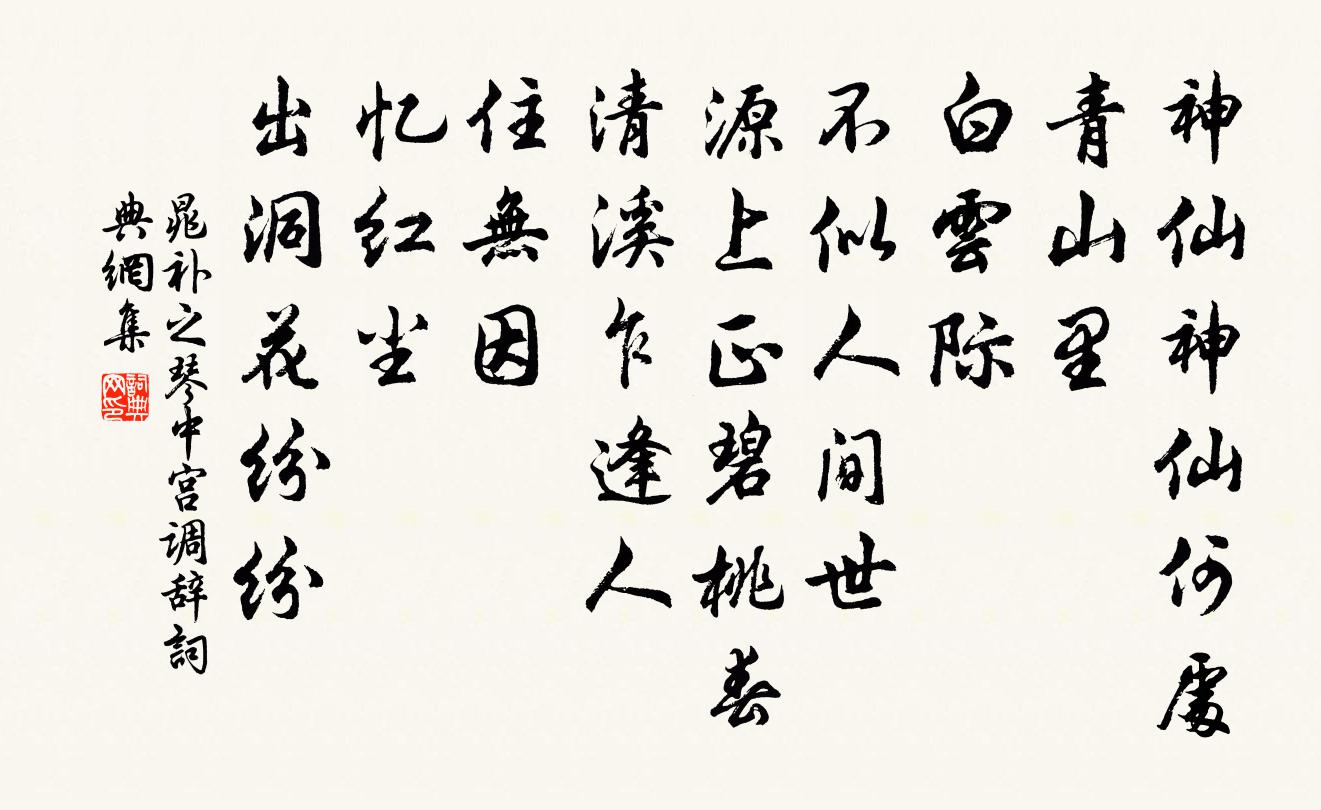 神仙神仙何處
青山里
白雲际
不似人间世
源上正碧桃春
清溪乍逢人
住無因
忆红尘
出洞花纷纷
晁补之琴中宫调辞詞
典網集
詞典网印